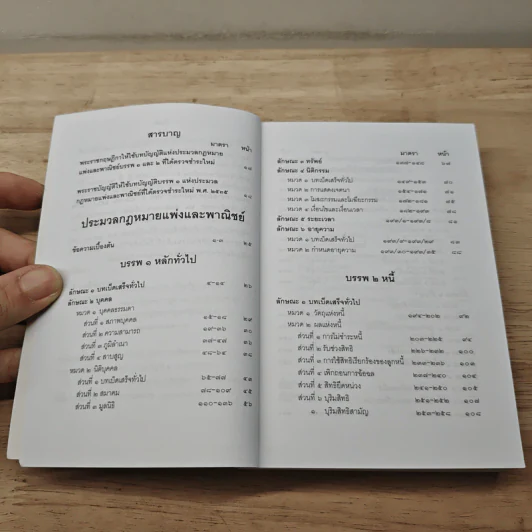 สารบาญ
มาตรา หน้า
พระราชกฤษฎีกาให้ใช้บทบัญญัติแห่งประมวลกฎหมาย
แพ่งและพาณิชย์บรรพ ๑ และ ๒ ที่ได้ตรวจชำระใหม่
พระราชบัญญัติให้ใช้บทบัญญัติบรรพ ๑ แห่งประมวล
กฎหมายแพ่งและพาณิชย์ที่ได้ตรวจชำระใหม่ พ.ศ. ๒๕๓๕
ประมวลกฎหมายแพ่งและพาณิชย์
ข้อความเบื้องต้น ๑-๓ ๒๕
บรรพ ๑ หลักทั่วไป
ลักษณะ ๑ บทเบ็ดเสร็จทั่วไป ๔-๑๔ ๒๖
ลักษณะ ๒ บุคคล
หมวด ๑ บุคคลธรรมดา
ส่วนที่ ๑ สภาพบุคคล ๑๕-๑๘ ๒๙
ส่วนที่ ๒ ความสามารถ ๑๙-๓๖ ๓๐
ส่วนที่ ๓ ภูมิลำเนา ๓๗-๔๗ ๓๖
ส่วนที่ ๔ สาบสูญ ๔๘-๖๔ ๓๘
หมวด ๒ นิติบุคคล
ส่วนที่ ๑ บทเบ็ดเสร็จทั่วไป ๖๕-๗๗ ๔๓
ส่วนที่ ๒ สมาคม ๗๘-๑๐๙ ๔๕
ส่วนที่ ๓ มูลนิธิ ๑๑๐-๑๓๖ ๕๖
มาตรา หน้า
ลักษณะ ๓ ทรัพย์ ๑๓๗-๑๔๘ ๖๗
ลักษณะ ๔ นิติกรรม
หมวด ๑ บทเบ็ดเสร็จทั่วไป ๑๔๙-๑๕๓ ๗๐
หมวด ๒ การแสดงเจตนา ๑๕๔-๑๗๑ ๗๑
หมวด ๓ โมฆะกรรมและโมฆียะกรรม ๑๗๒-๑๘๑ ๗๕
หมวด ๔ เงื่อนไขและเงื่อนเวลา ๑๘๒-๑๙๓ ๗๘
ลักษณะ ๕ ระยะเวลา ๑๙๓/๑-๑๙๓/๘ ๘๑
ลักษณะ ๖ อายุความ
หมวด ๑ บทเบ็ดเสร็จทั่วไป ๑๙๓/๙-๑๙๓/๒๙
หมวด ๒ กำหนดอายุความ ๑๙๓/๓๐-๑๙๓/๓๕ ๘๘
บรรพ ๒ หนี้
ลักษณะ ๑ บทเบ็ดเสร็จทั่วไป
หมวด ๑ วัตถุแห่งหนี้ ๑๙๔-๒๐๒ ๙๒
หมวด ๒ ผลแห่งหนี้
ส่วนที่ ๑ การไม่ชำระหนี้ ๒๐๓-๒๒๕ ๙๔
ส่วนที่ ๒ รับช่วงสิทธิ ๒๒๖-๒๓๒ ๑๐๐
ส่วนที่ ๓ การใช้สิทธิเรียกร้องของลูกหนี้ ๒๓๓-๒๓๖ ๑๐๓
ส่วนที่ ๔ เพิกถอนการฉ้อฉล ๒๓๗-๒๔๐ ๑๐๔
ส่วนที่ ๕ สิทธิยึดหน่วง ๒๔๑-๒๕๐ ๑๐๕
ส่วนที่ ๖ บุริมสิทธิ ๒๕๑-๒๕๒ ๑๐๗
๑. บุริมสิทธิสามัญ ๒๕๓-๒๕๘ ๑๐๘